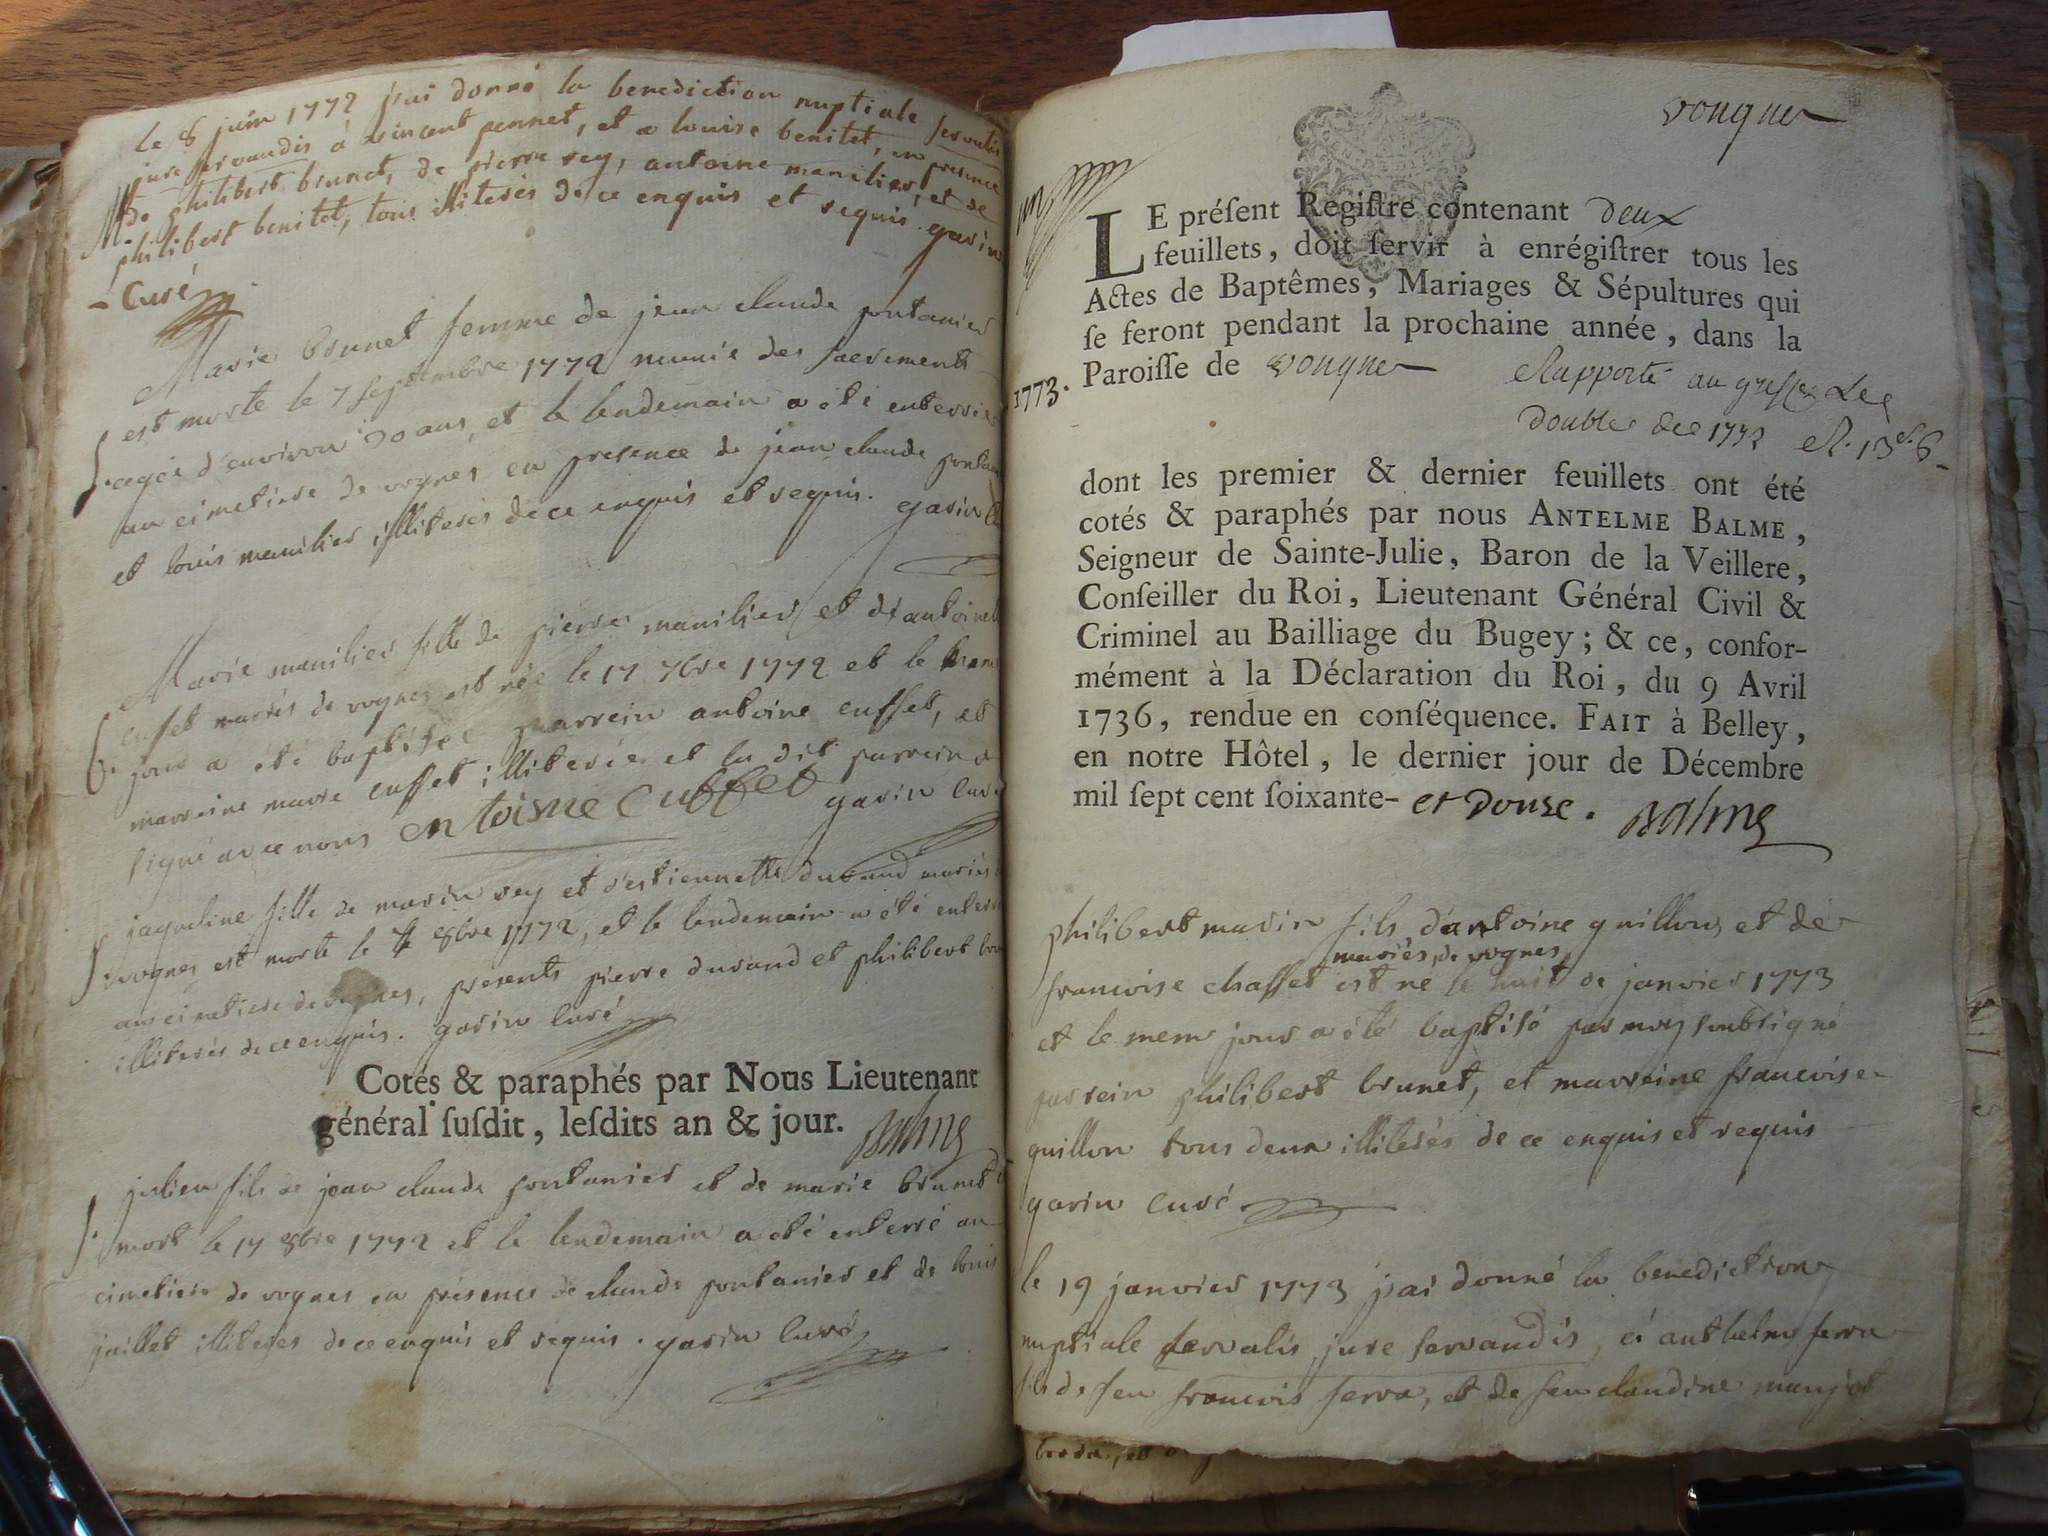 le 8 juin 1772 j'ai donné la benediction nuptiale servatis
jure servandis à vincent pennet, et a louise benitet, en presence
M. de philibert brunet, de pierre rey, antoine manilier, et de
philibert benitet, tous illiterés de ce enquis et requis. garin
- Curé
Marie brunet femme de jean claude pontanier
est morte le 7 septembre 1772 munie des sacrements
S. agée d'environ 30 ans, et le lendemain a été enterrée
au cimetiere de vognes en presence de jean claude
et louis manilier illiterés de ce enquis et requis. garin
Marie manilier fille de pierre manilier et d'antoinette
cusset mariés de vognes est née le 17 7bre 1772 et le
B. jour a été baptisée parrein antoine cusset, et
marreine marie cusset illiterée et le dit parrein a
signé avec nous entoisne Cusset garin Curé
jaqueline fille de marin rey et d'estiennette durand mariés
S. vognes est morte le 8bre 1772, et le lendemain a été
au cimetiere de vognes, presents pierre durand et philibert
illiterés de ce enquis. garin Curé
Cotés & paraphés par Nous Lieutenant
général ſuſdit, leſdits an & jour. Balme
S. julien fils de jean claude pontanier et de marie brunet
mort le 17 8bre 1772 et le lendemain a été enterré au
cimetiere de vognes en présence de claude pontanier et de louis
juillet illiterés de ce enquis et requis. garin Curé
vongnes
LE préſent Regiſtre contenant deux
feuillets, doit ſervir à enrégiſtrer tous les
Actes de Baptêmes, Mariages & Sépultures qui
ſe feront pendant la prochaine année, dans la
1773. Paroiſſe de vongnes Rapporté au greffe Les
doubles de 1772
dont les premier & dernier feuillets ont été
cotés & paraphés par nous ANTELME BALME,
Seigneur de Sainte-Julie, Baron de la Veillere,
Conſeiller du Roi, Lieutenant Général Civil &
Criminel au Bailliage du Bugey; & ce, confor-
mément à la Déclaration du Roi, du 9 Avril
1736, rendue en conſéquence. FAIT à Belley,
en notre Hôtel, le dernier jour de Décembre
mil ſept cent ſoixante- et Douze. Balme
philibert marin fils d'antoine guillon et de
mariés de vognes
francoise chasset est né le huit de janvier 1773
et le meme jour a été baptisé par moy soubsigné
parrein philibert brunet, et marreine francoise
guillon tous deux illiterés de ce enquis et requis
garin Curé
le 19 janvier 1773 j'ai donné la benediction
nuptiale servatis jure servandis, à anthelme serra
fils de feu francois serra, et de feu claudine manjot